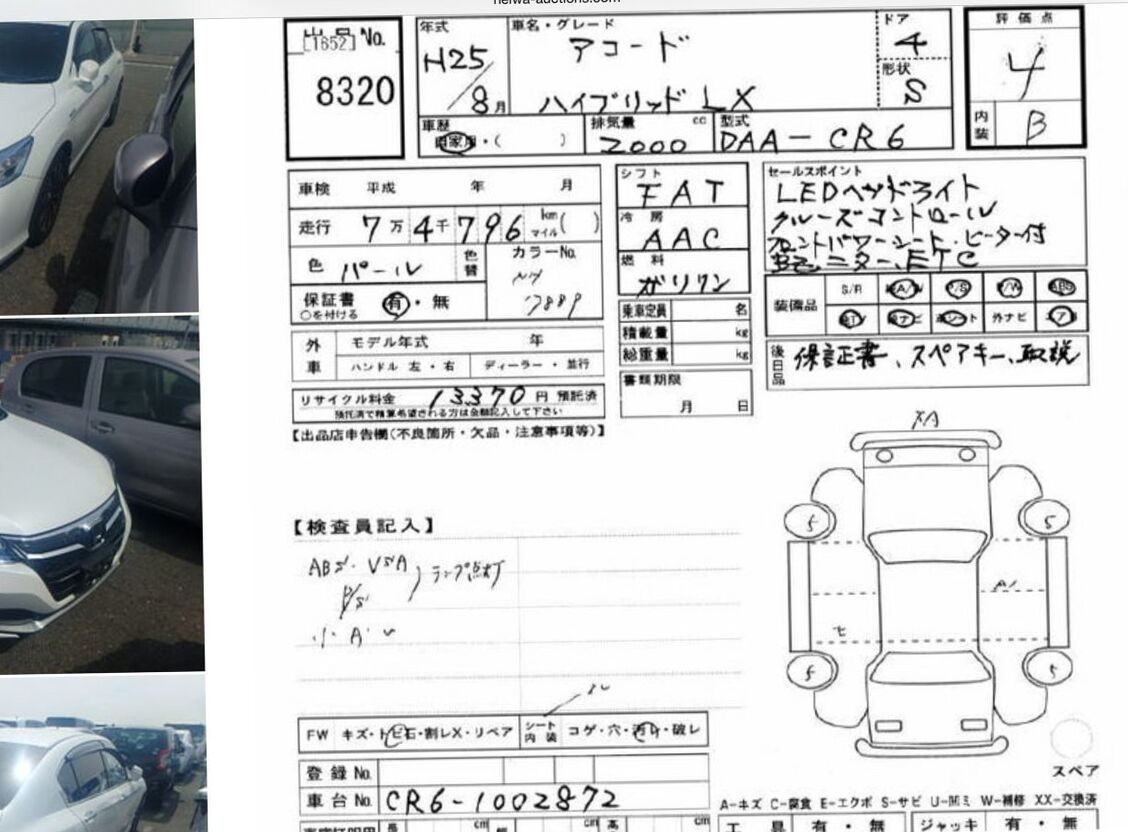 heiwa-auctions.com
出品No.
[1652]
8320
年式
H25/8月
車名・グレード
アコード
ハイブリッド LX
ドア
4
形状
S
評価点
4
内装
B
車歴
自家用・( )
排気量 cc
2000
型式
DAA-CR6
車検 平成 年 月
走行 7万4千796 km マイル( )
色 パール
色替
カラーNo.
保証書 有・無
○を付ける
外車
モデル年式 年
ハンドル 左・右
ディーラー・並行
リサイクル料金 13370 円 預託済
預託済で精算希望される方は金額記入して下さい
シフト
FAT
冷房
AAC
燃料
ガソリン
乗車定員 名
積載量 kg
総重量 kg
書類期限
月 日
セールスポイント
LEDヘッドライト
クルーズコントロール
フロントパワーシート・ヒーター付
ETC
装備品
S/R A/W P/S P/W ABS
TV ナビ 革シート 外ナビ エアB
後日品
保証書、スペアキー、取説
【出品店申告欄(不良箇所・欠品・注意事項等)】
【検査員記入】
ABS・VSA
P/S
ランプ点灯
小A
XA
5
5
A1
5
5
FW キズ・トビ石・割レX・リペア
シート内装 コゲ・穴・汚れ・破レ
登録No.
車台No. CR6-1002872
スペア
A-キズ C-腐食 E-エクボ S-サビ U-凹ミ W-補修 XX-交換済
長 cm 幅 cm 高 cm
工具 有・無 ジャッキ 有・無